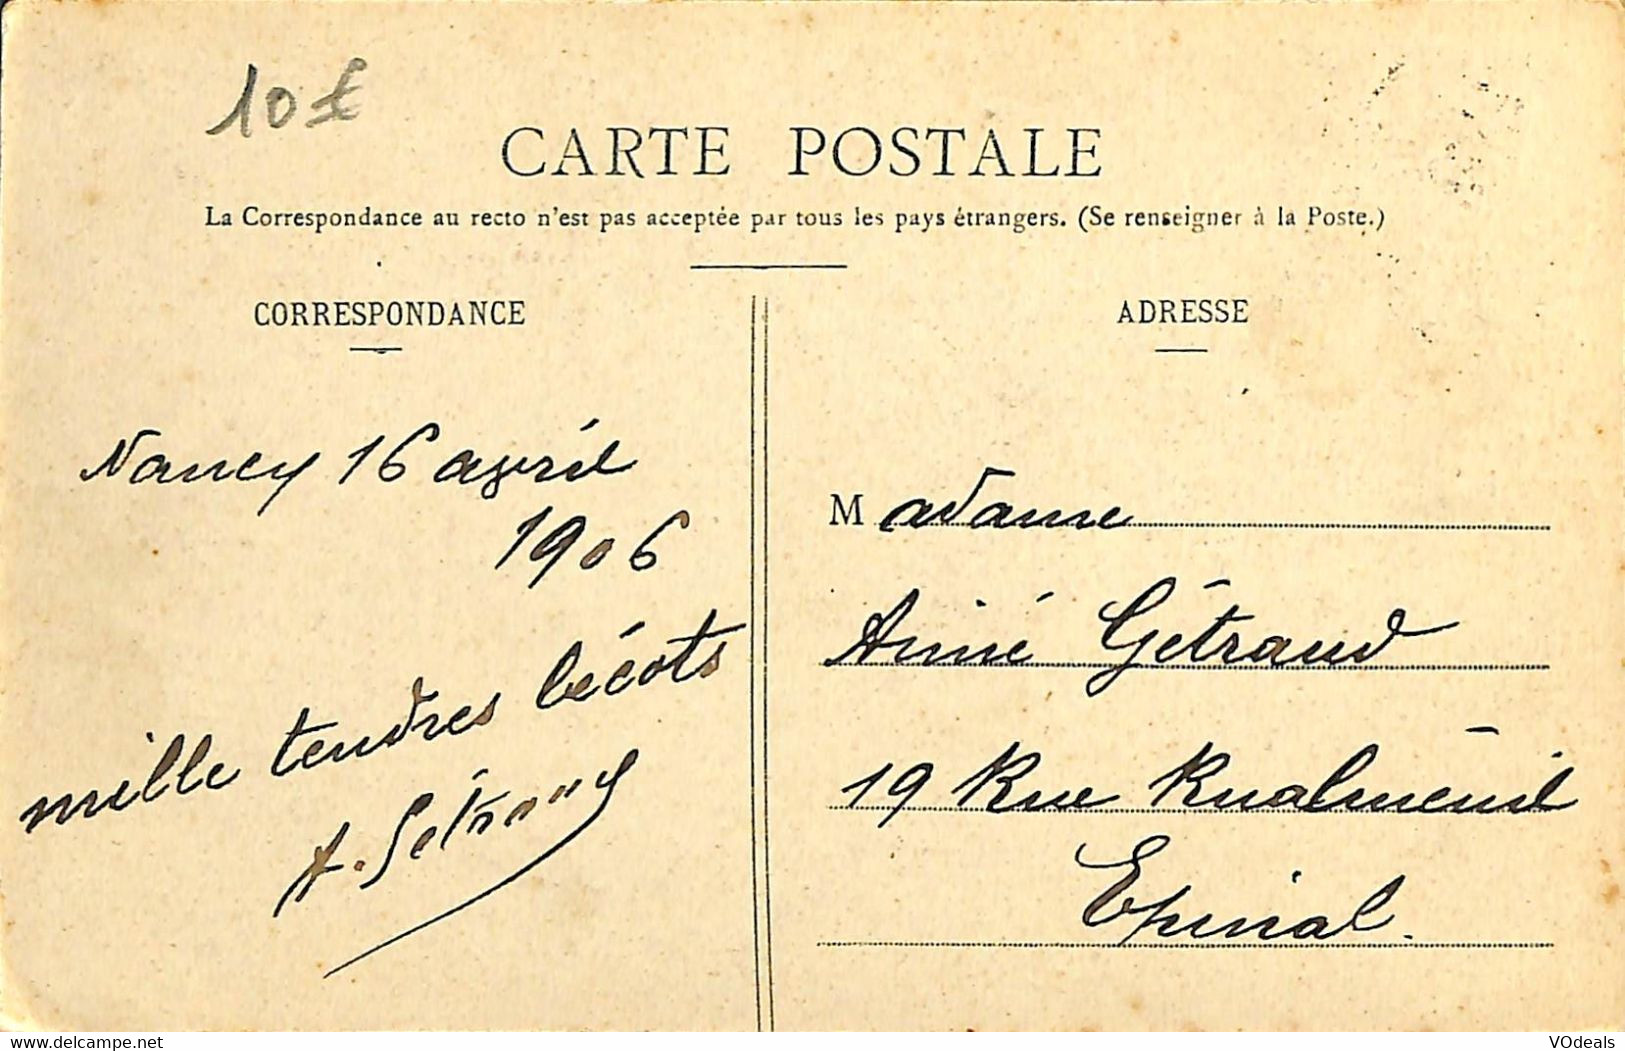 10 £
CARTE POSTALE
La Correspondance au recto n'est pas acceptée par tous les pays étrangers. (Se renseigner à la Poste.)
CORRESPONDANCE
Nancy 16 avril
1906
mille tendres bécots
A. Gétraud
ADRESSE
Madame
Aimé Gétraud
19 Rue Rualménil
Epinal.
delcampe.net
VOdeals